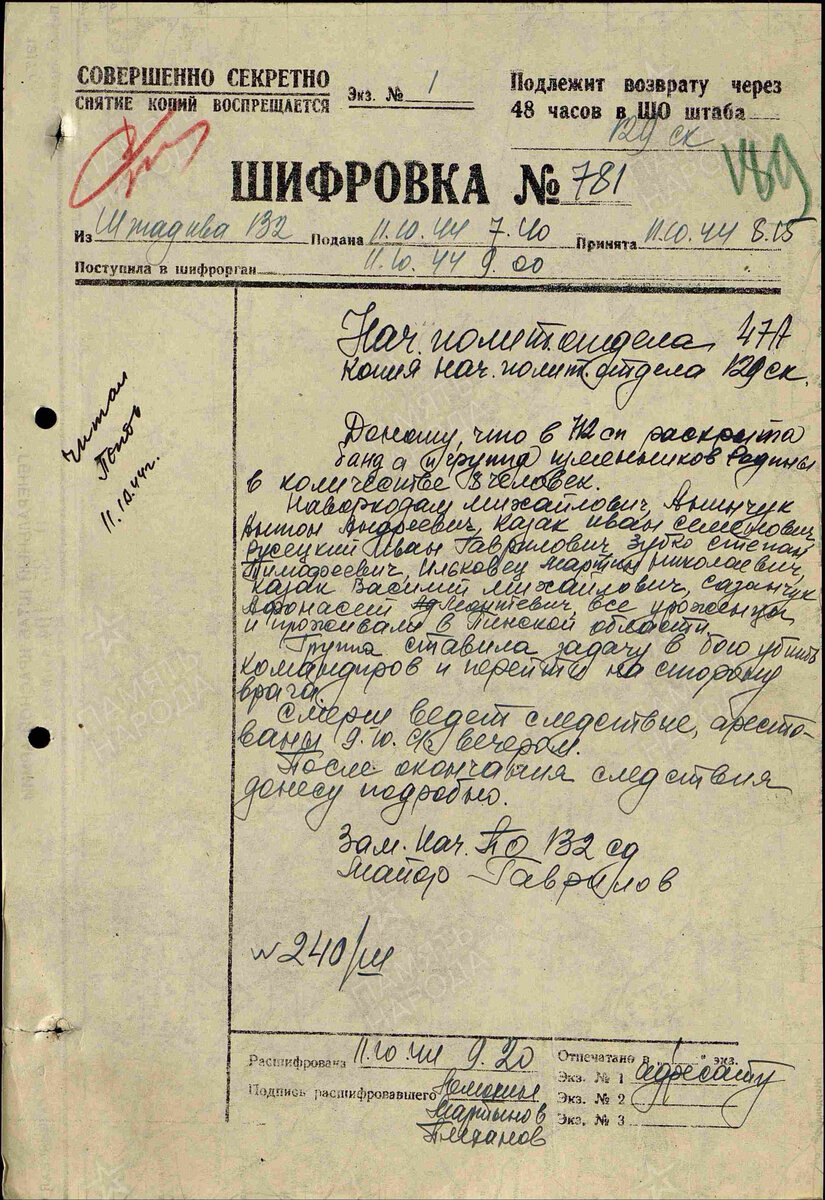 СОВЕРШЕННО СЕКРЕТНО
СНЯТИЕ КОПИЙ ВОСПРЕЩАЕТСЯ
Экз. № 1
Подлежит возврату через
48 часов в ШО штаба
129 ск
ШИФРОВКА № 781
Из Штадива 132 Подана 11.10.44 7.40 Принята 11.10.44 8.15
Поступила в шифрорган 11.10.44 9.00
Нач. политотдела 47А
Копия нач. политотдела 129 ск.
читал
11.10.44г.
Доношу, что в 712 сп раскрыта
банда и группа изменьников Родины
в количестве 8 человек.
Михайлович,
Антон Андреевич, Казак Иван Семенович,
Русецкий Иван Гаврилович, Зубко Степан
Тимофеевич, Ильковец Мартин Николаевич,
Казак Василий Михайлович, Сазанчук
Афонасий Леонтевич, все уроженцы
и проживали в Пинской области.
Группа ставила задачу в бою убить
командиров и перейти на сторону
врага.
Смерш ведет следствие, аресто-
ваны 9.10. вечером.
После окончания следствия
донесу подробно.
Зам. Нач. ПО 132 сд
Майор Гаврилов
№240/ш
Расшифрована 11.10.44 9.20
Подпись расшифровавшего
Мартынов
Отпечатано в „1“ экз.
Экз. № 1 адресату
Экз. № 2
Экз. № 3
ПАМЯТЬ
НАРОДА